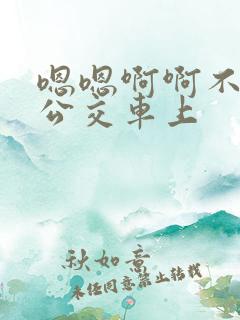 嗯嗯啊啊不
公交車上
秋如意
未经同意禁止转载